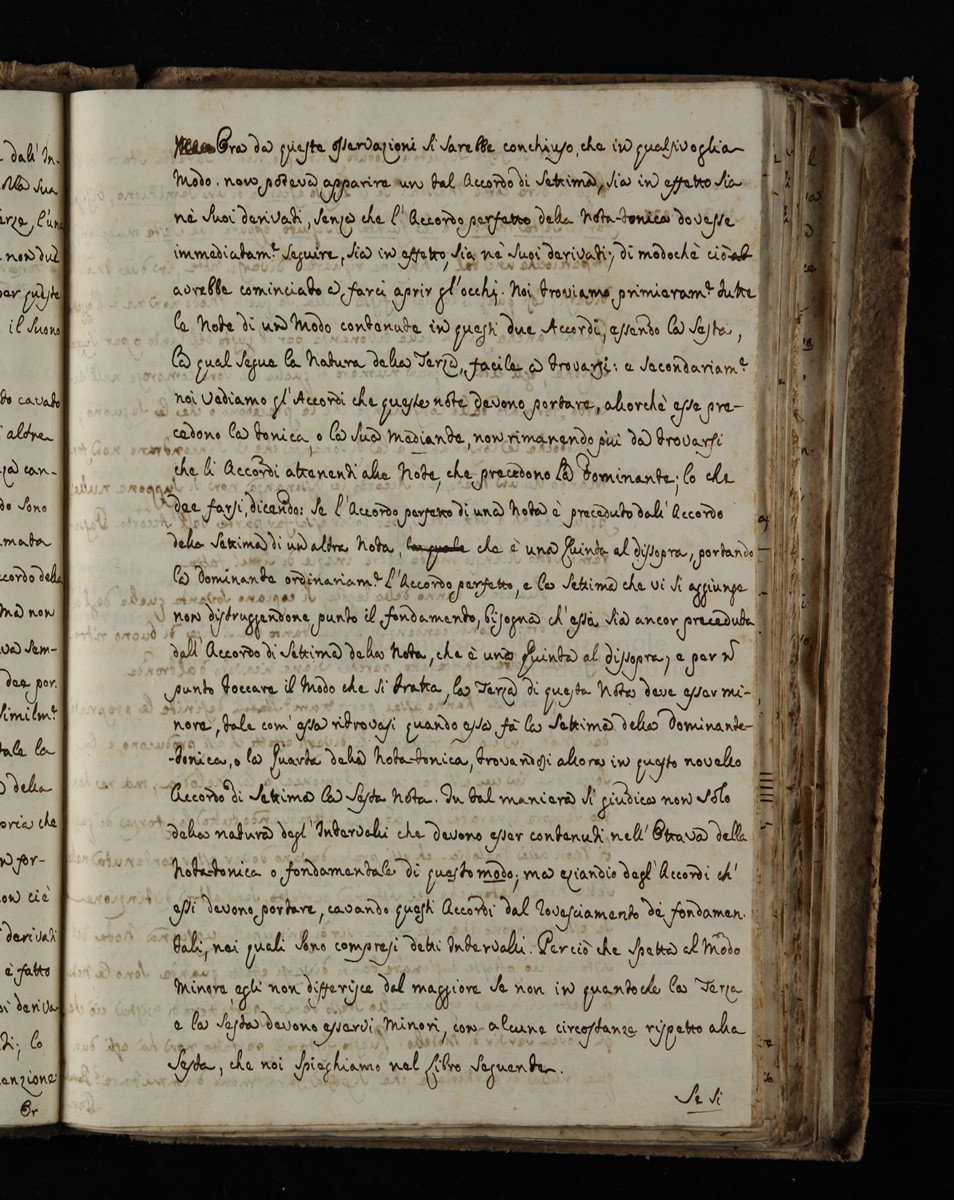 dall' In-
Ora da queste osservazioni si sarebbe conchiuso, che in qualsivoglia
Modo non poteva apparire un tal Accordo di Settima, sia in effetto sia
nè suoi derivati, senza che l'Accordo perfetto della Nota-tonica dovesse
immediatam.e seguire, sia in effetto, sia nè suoi derivati; di modochè ciò
avrebbe cominciato à farci aprir gl'occhj. Noi troviamo primieram.e tutte
le Note di un Modo contenute in questi due Accordi, essendo la Sesta,
la qual segue la Natura della Terza, facile a trovarsi: e secondariam.e
noi vediamo gl'Accordi che queste note devono portare, allorchè esse pre-
cedono la tonica, o la sua mediante, non rimanendo più da trovarsi
che li Accordi attenenti alle Note, che precedono la Dominante; lo che
dee farsi, dicendo: Se l'Accordo perfetto di una Nota è preceduto dall'Accordo
della Settima di un'altra Nota, la quale che è una Quinta al dissopra, portando
la dominante ordinariam.e l'Accordo perfetto, e la Settima che vi si aggiunge
non distruggendone punto il fondamento, bisogna ch'essa sia ancor preceduta
dall'Accordo di Settima della Nota, che è una Quinta al dissopra; e per ñ
punto toccare il Modo che si tratta, la Terza di questa Nota deve esser mi-
nore, tale com'essa ritrovasi quando essa fà la Settima della Dominante-
-tonica, o la Quarta della Nota-tonica, trovandosi allora in questo novello
Accordo di Settima la Sesta Nota. In tal maniera si giudica non solo
della natura degl'Intervalli che devono esser contenuti nell'Ottava della
Nota-tonica o fondamentale di questo modo; ma eziandio degl'Accordi ch'
essi devono portare, cavando questi Accordi dal Rovesciamento dè fondamen-
tali, nei quali sono compresi detti Intervalli. Perciò che spetta al Modo
Minore, egli non differisce dal maggiore se non in quantochè la Terza
e la Sesta devono esservi Minori, con alcune circostanze rispetto alla
Sesta, che noi spieghiamo nel Libro seguente.
Se si